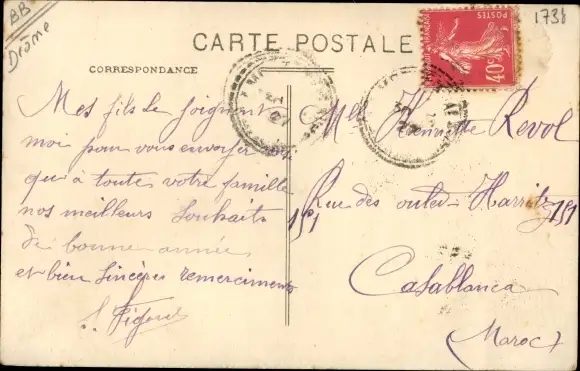 BB
Drôme
1738
CARTE POSTALE
CORRESPONDANCE
POSTES
40c
Mes fils se joignent
moi pour vous envoyer
qui à toute votre famille
nos meilleurs souhaits
de bonne année
et bien sincères remerciments
Mlle Henriette Revol
Rue des ouled-Harritz 151
151
Casablanca
Maroc